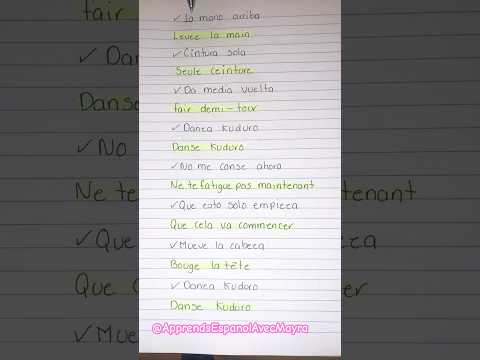 ✓ La mano arriba
Levee la main
✓ Cintura sola
Seule ceinture
✓ Da media vuelta
fair demi-tour
✓ Danza Kuduro
Danse Kuduro
✓ No me canse ahora
Ne te fatigue pas maintenant
✓ Que esto solo empieza
Que cela va commencer
✓ Mueve la cabeza
Bouge la tête
✓ Danza Kuduro
Danse Kuduro
@ApprendsEspanolAvecMayra